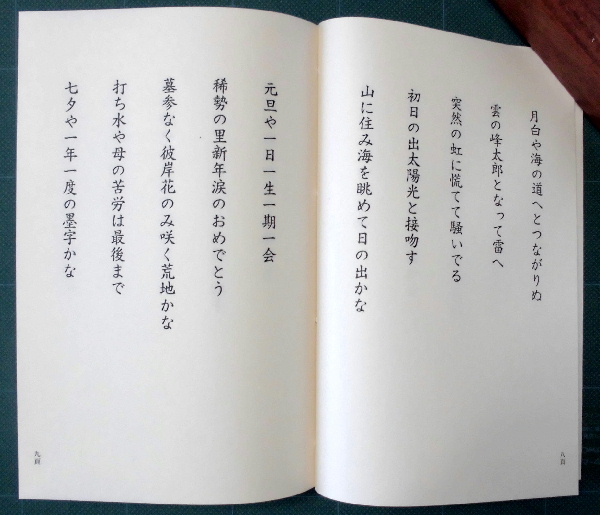 月白や海の道へとつながりぬ
雲の峰太郎となって雷へ
突然の虹に慌てて騒いでる
初日の出太陽光と接吻す
山に住み海を眺めて日の出かな
八頁
元旦や一日一生一期一会
稀勢の里新年涙のおめでとう
墓参なく彼岸花のみ咲く荒地かな
打ち水や母の苦労は最後まで
七夕や一年一度の墨字かな
九頁